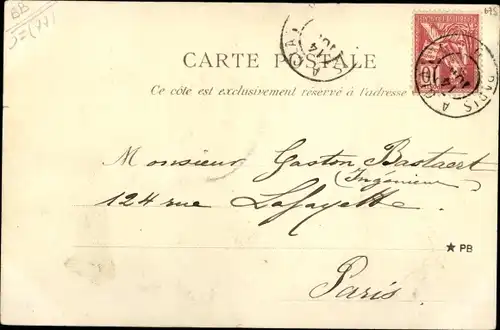 BB
675
CARTE POSTALE
Ce côté est exclusivement réservé à l'adresse
Monsieur Gaston Bastaert
(Ingénieur)
124 rue Lafayette
★ PB
Paris